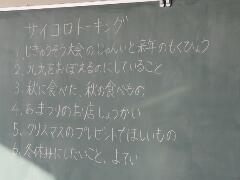 サイコロトーキング
1.じきゅうそう大会のじゅんいと来年のもくひょう
2.九九をおぼえるのにしていること
3.秋に食べた、秋の食べもの
4.おまつりのお店しょうかい
5.クリスマスのプレゼントでほしいもの
6.冬休みにしたいこと、よてい